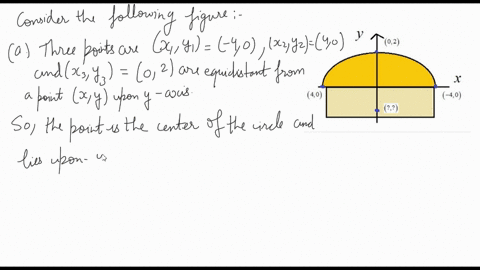 Consider the following figure:-
(a) Three points are (x₁, y₁) = (-4,0), (x₂, y₂) = (4,0)
and (x₃, y₃) = (0, 2) are equidistant from
a point (x, y) upon y-axis.
So, the point is the center of the circle and
lies upon- y
y
(0,2)
x
(4,0)
(-4,0)
(?,?)